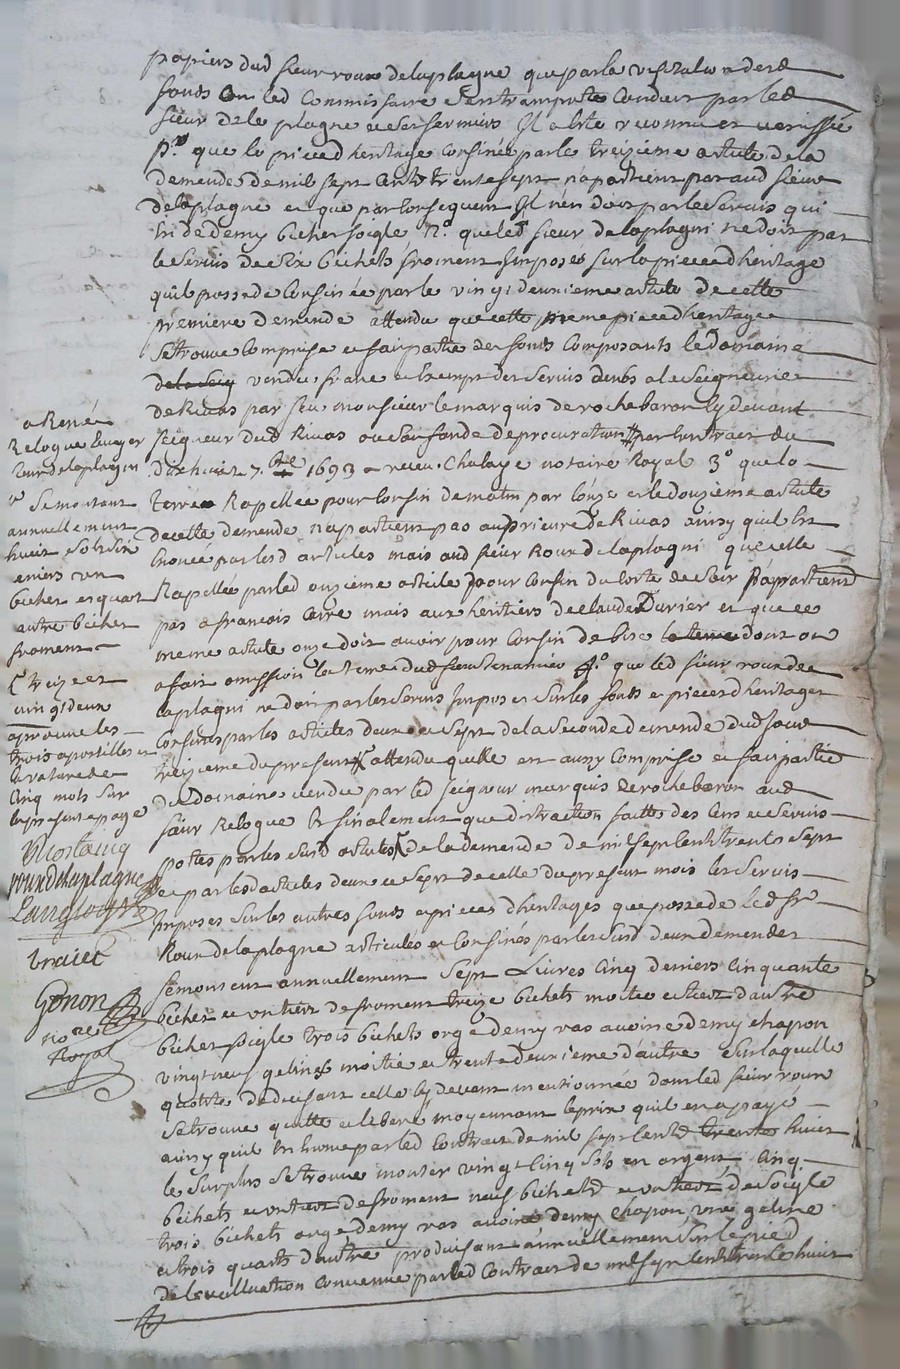 papiers dud sieur roux delaplagne que par la visitation desd
fonds ou led Commissaire s'est transporté Conduit par led
sieur dela plagne
p.r que la piece d heritage Confinée par le treizieme article de la
demende de mil sept Cents trente sept n'apartient pas aud sieur
delaplagne et que par Consequent Il n'en doit pas le servis qui
est de demy bichet soigle 2.o que led sieur delaplagni ne doit pas
le servis de six bichets froment Imposés sur la piece d heritage
quil possede Confinée par le vingt deuxieme article de cette
premiere demende attendu que cette meme piece d heritage
se trouve Comprise et fait partie des fonds Composants le domaine
dela vendu franc et Exempt des servis denbs a la seigneurie
de Rivas par feu monsieur le marquis de rochebaron Cy devant
seigneur dud Rivas ou son fondé de procuration par Contract du
dixhuit 7.bre 1693 receu Chalaye notaire Royal 3.o que la
terre Rapellée pour Confin de matin par l'onze et le douzieme article
de cette demende n'apartient pas au prieuré de Rivas ainsy quil Est
Enoncé par lesd articles mais aud sieur Roux delaplagni que celle
Rapellée par led onzieme article pour Confin du Coté de soir n'appartient
pas a francois Caire mais aux heritiers de claude Durier et que ce
meme article onze doit avoir pour Confin de bise la terre dont on
a fait omission la terre dud sieur tenancier 4.o que led sieur roux de
laplagni ne doit pas les servis Imposés sur les fonds et pieces d heritages
Confinés par les articles deux et sept de la seconde demende dud jour
treizieme du present attendu qu'elle est aussy Comprise et fait partie
du domaine vendu par led seigneur marquis de rochebaron aud
sieur Relogue Et finalement que distraction faitte des Cens et servis
portés par les susd articles de la demende de mil sept Cents trente sept
et par lesd articles deux et sept de celle du present mois les servis
Imposés sur les autres fonds et pieces d heritages que possede led sr
Roux delaplagne articulés et Confinés par les susd deux demendes
se montent annuellement sept Livres Cinq deniers Cinquante
bichets et un tiers de froment treize bichets moitié et tiers d'autre
bichet soigle trois bichets orge demy ras avoine demy chapon
vingt neuf gelines moitié et trente deuxieme d'autre sur laquelle
quotité deduisant celle Cy devant mentionnée dont led sieur roux
se trouve quitte et liberé moyennant le prix quil en a payé
ainsy quil Est Enoncé par led Contract de mil sept Cents trente huit
le surplus se trouve monter vingt Cinq sols en argent Cinq
bichets et un tiers de froment neuf bichets et un tiers de soigle
trois bichets orge demy ras avoine demy chapon une geline
et trois quarts d'autre produisant annuellement sur le pied
de l'evalluation Convenue par led Contract de mil sept Cents trente huit
a René
Relogue Ecuyer
sieur de laplagni
se montant
annuellement
huit sols six
deniers un
bichet et quart
autre bichet
froment
treize et
vingt deux
aprouvé les
trois apostilles et
la rature de
Cinq mots sur
la presente page
rouxdelaplagne
vraiet
Gonon
no.re
Royal